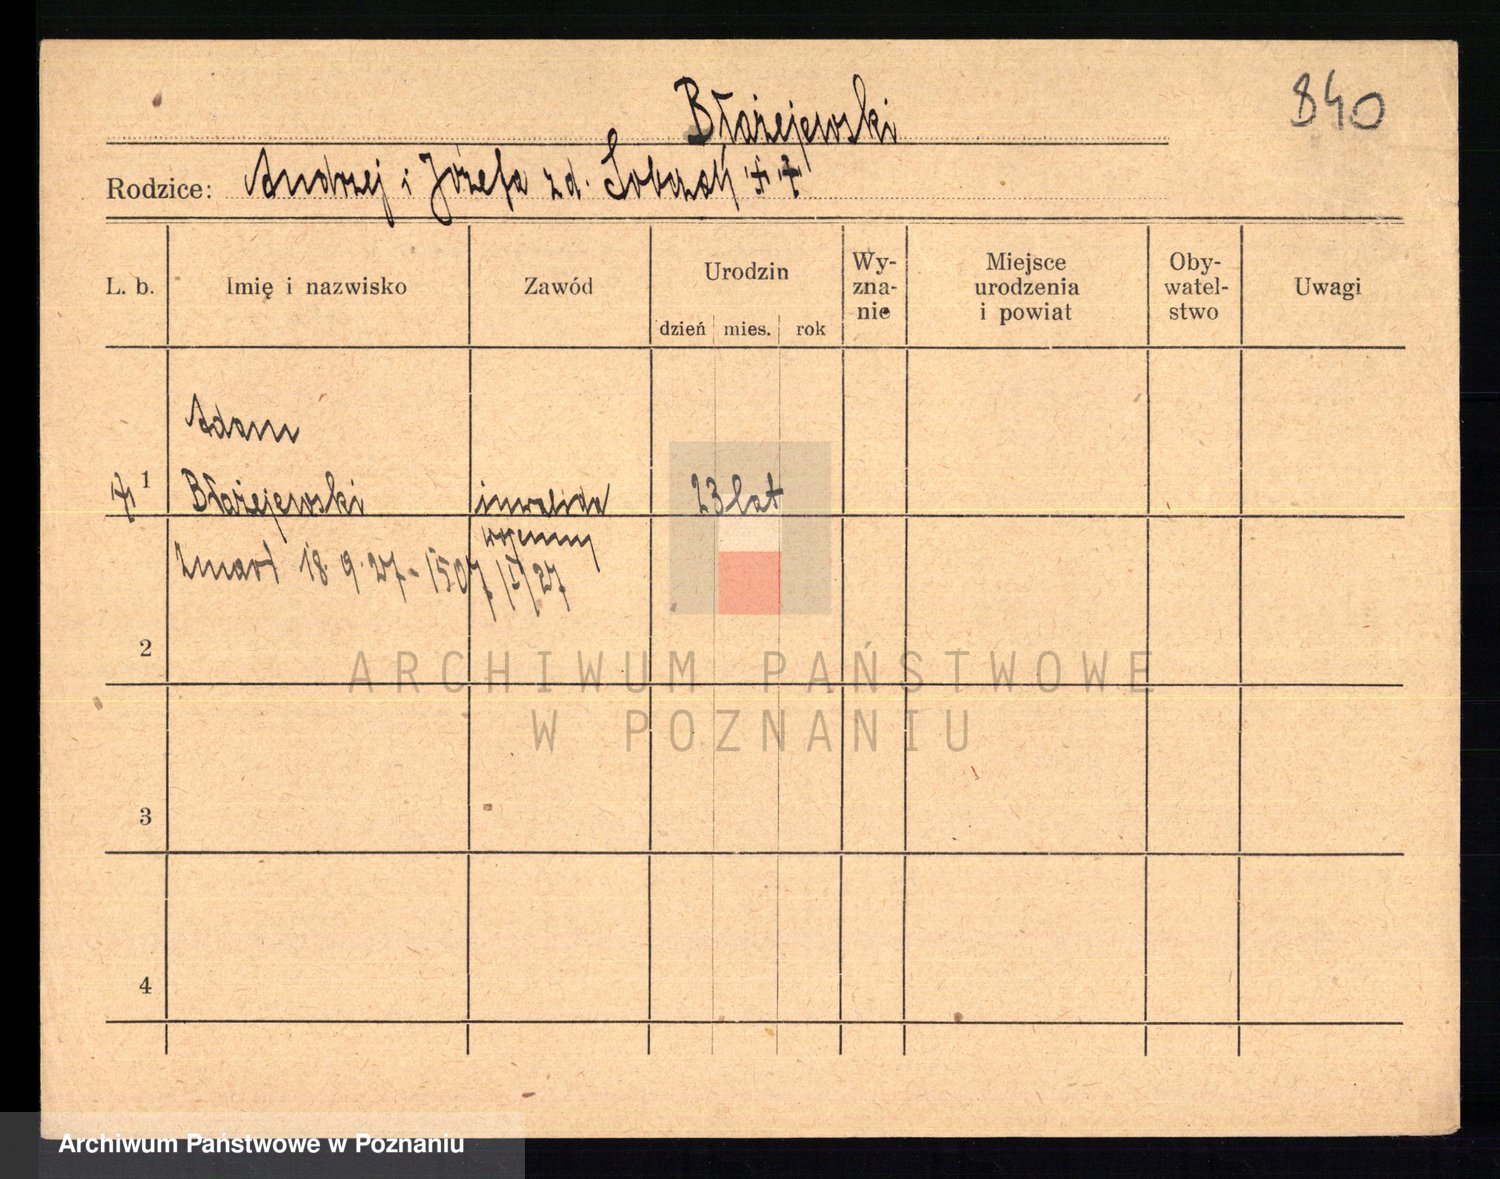 840
Błażejewski
Rodzice: Andrzej i Józefa zd. Sobczak ++
L. b.
Imię i nazwisko
Zawód
Urodzin
dzień mies. rok
Wy-
zna-
nie
Miejsce
urodzenia
i powiat
Oby-
watel-
stwo
Uwagi
Adam
+ 1 Błażejewski inwalida 23 lat
wojenny
Zmarł 18.9.27 - 1507/I/27
2
3
4
ARCHIWUM PAŃSTWOWE
W POZNANIU
Archiwum Państwowe w Poznaniu